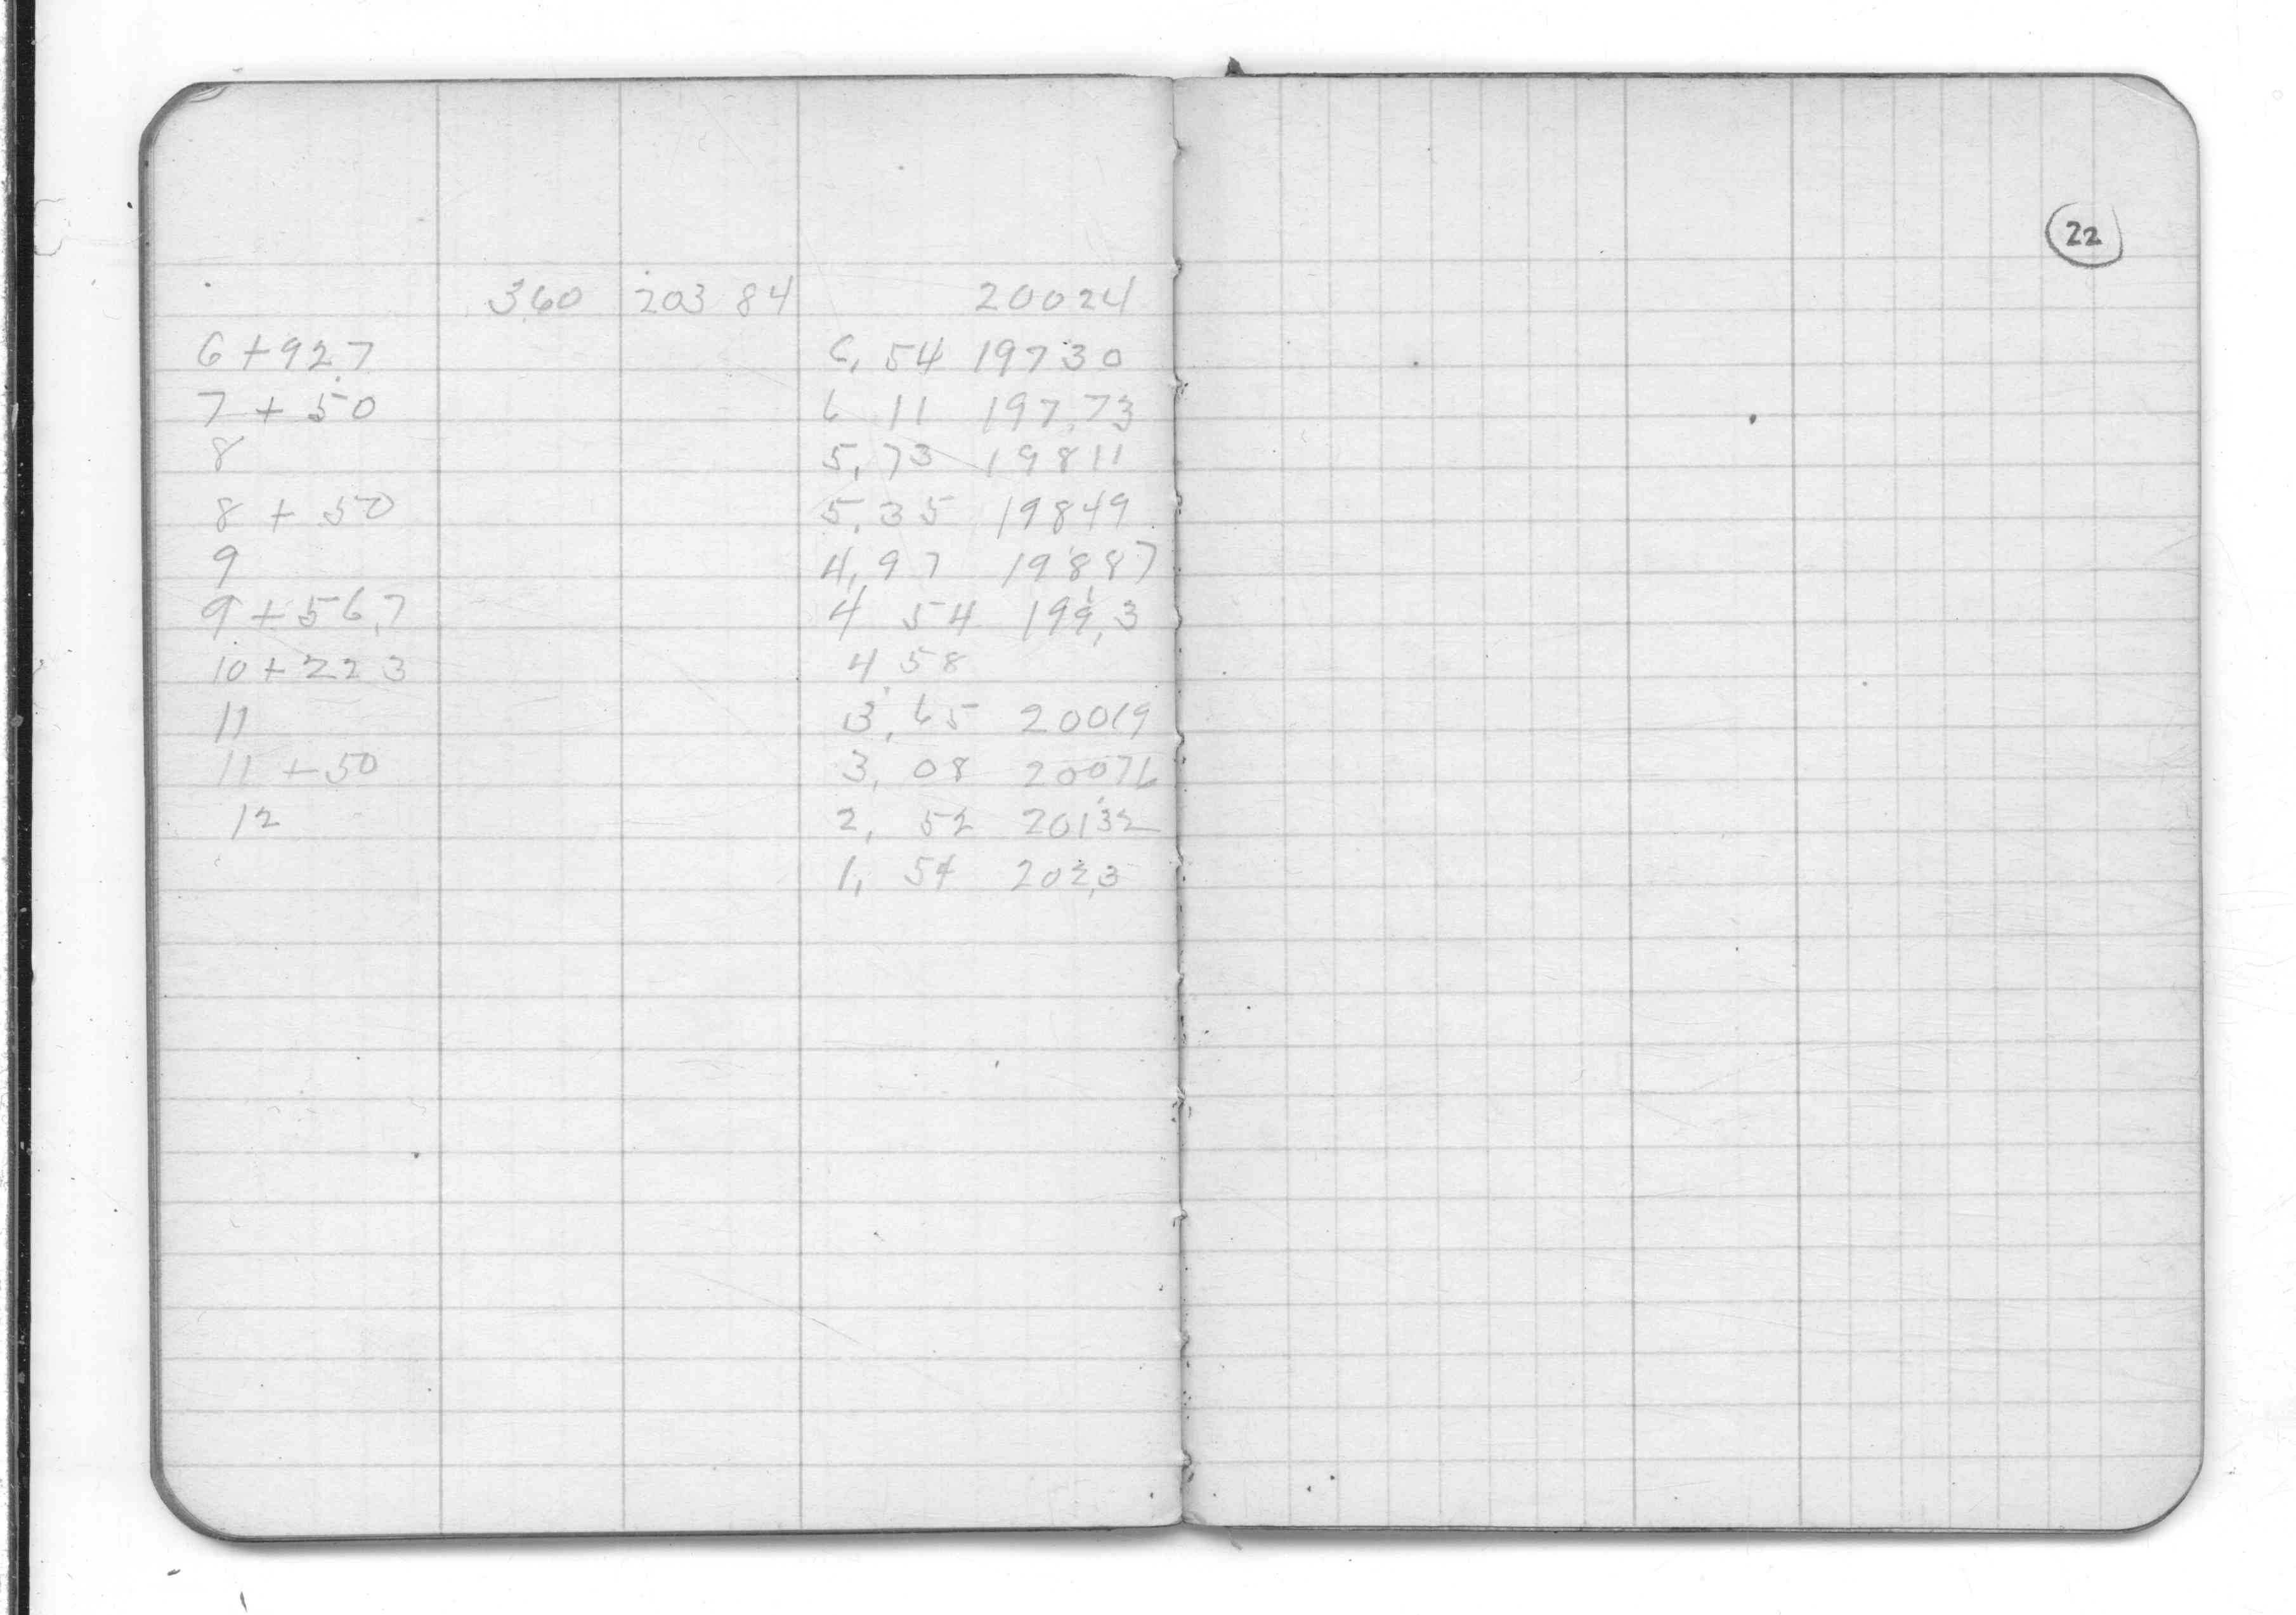 360 203 84 20024
6+92.7 6, 54 19730
7+50 6 11 197.73
8 5, 73 19811
8+50 5.35 19849
9 4, 97 19887
9+56,7 4 54 199,3
10+223 4 58
11 3, 65 20019
11+50 3, 08 20076
12 2, 52 20132
1, 54 202,3
22